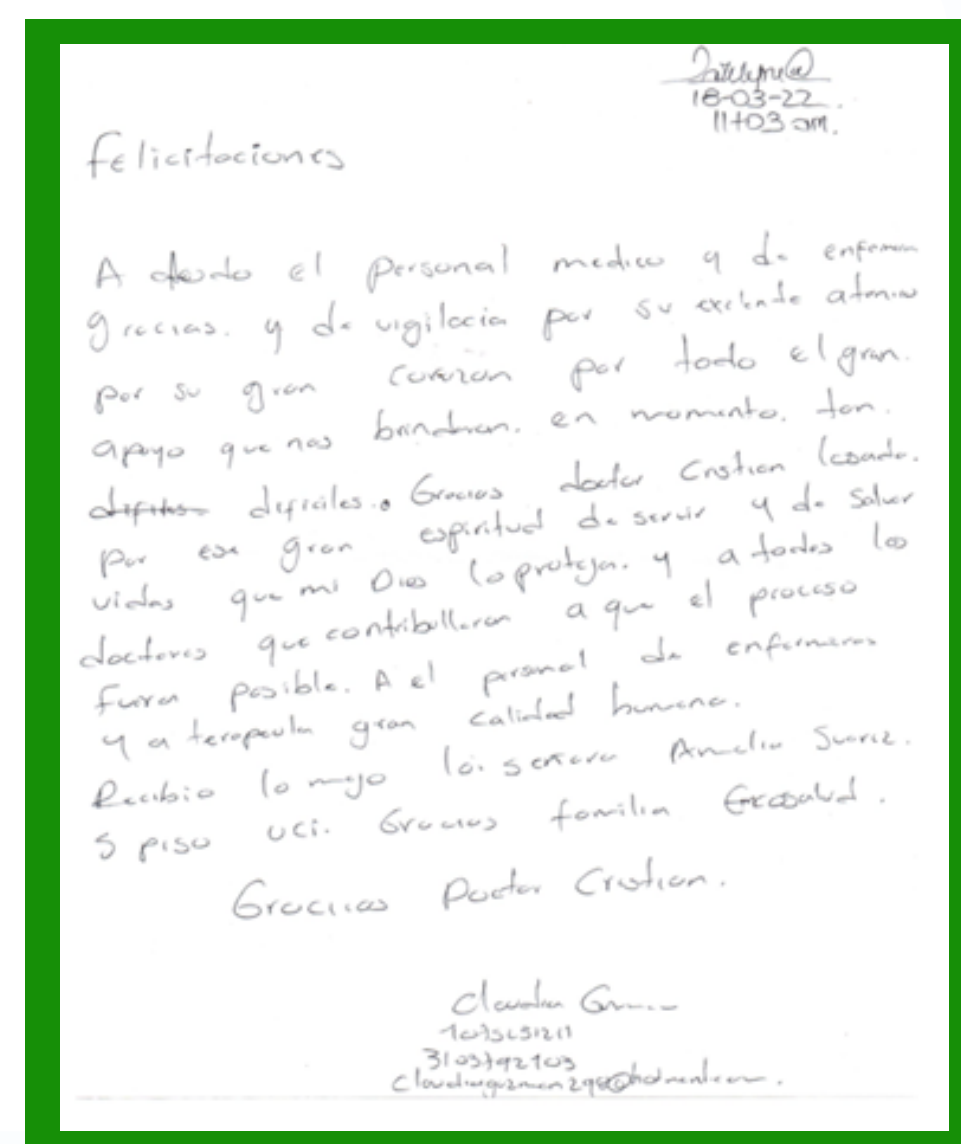 18-03-22
11+03 am.
Felicitaciones
A todo el personal medico y de
gracias. y de vigilacia por su exelente
por su gran corazon por todo el gran.
apoyo que nos brindran. en momento. tan.
dificiles. Gracias doctor Cristian
por ese gran espiritud de servir y de salvar
vidas que mi Dios lo proteja. y a todos los
doctores que contribulleron a que el proceso
fuera posible. A el personal de enfermeras
y a terapeuta gran calidad humana.
Recibio lo mejo la señora Amelia Suarez.
5 piso uci. Gracias familia
Graciias Doctor Cristian.
Claudia